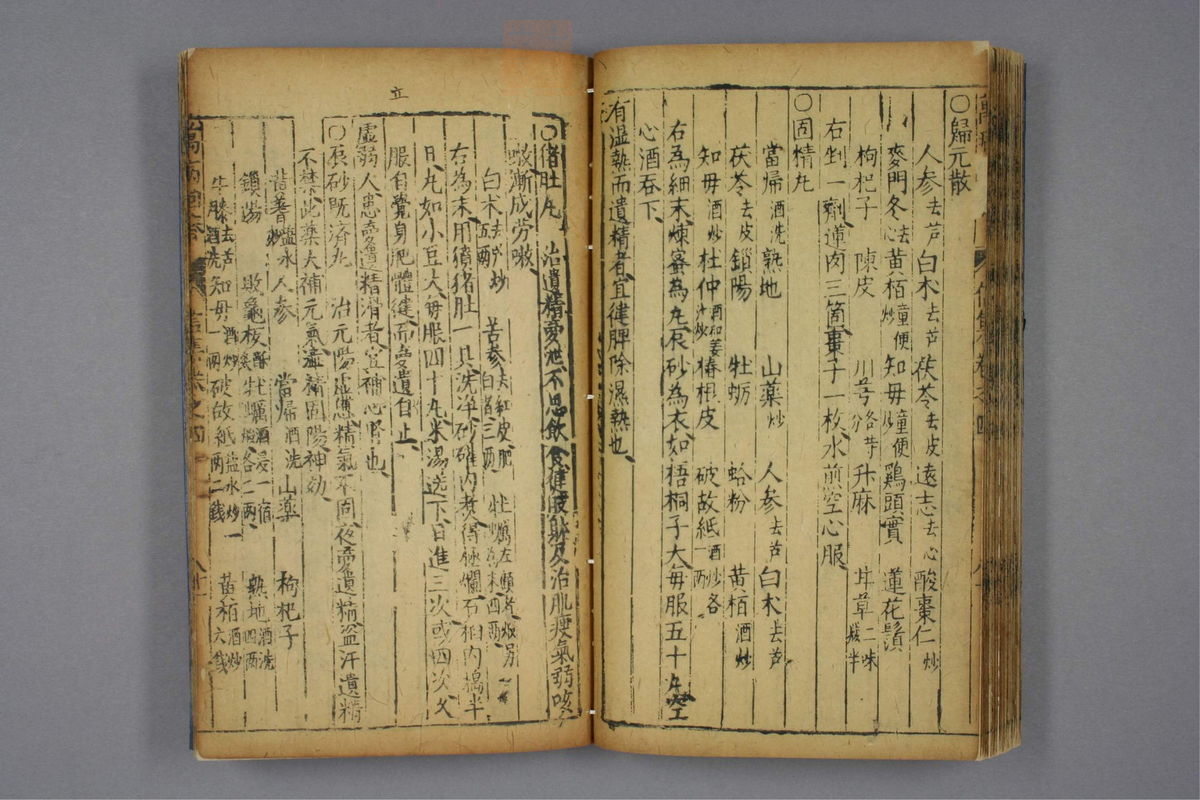 ○歸元散
人參去芦 白朮去芦 茯苓去皮 遠志去心 酸棗仁炒
麥門冬去心 黃栢童便炒 知毋童便炒 鷄頭實 蓮花鬚
枸杞子 陳皮 川芎各等分 升麻 甘草二味減半
右剉一劑蓮肉三箇棗子一枚水煎空心服
○固精丸
當歸酒洗 熟地 山藥炒 人參去芦 白朮去芦
茯苓去皮 鎖陽 牡蛎 蛤粉 黃栢酒炒
知毋酒炒 杜仲酒和姜汁炒 椿根皮 破故紙酒炒各一兩
右為細末煉蜜為丸辰砂為衣如梧桐子大每服五十丸空
心酒吞下
有湿熱而遺精者宜健脾除濕熱也
○猪肚丸 治遺精夢泄不思飲食健肢躰及治肌瘦氣弱咳
嗽漸成劳嗽
白朮去芦炒五兩 苦參去紅皮肥白者三兩 牡蠣左顧者煅另為末四兩
右為末用獖猪肚一具洗净砂確內煮得極爛石椢內搗半
日丸如小豆大每服四十丸米湯送下日進三次或四次久
服自覺身肥體健而夢遺自止
虛弱人患夢遺精滑者宜補心腎也
○辰砂既濟丸 治元陽虛憊精氣不固夜夢遺精盗汗遺精
不禁此藥大補元氣濇精固陽神効
黃蓍盐水炒 人參 當歸酒洗 山藥 枸杞子
鎖陽 敗龜板酥炙 牡蠣酒浸一宿煅各二兩 熟地酒洗四兩
牛膝去芦酒洗 知毋酒炒一兩 破故紙盐水炒一兩二錢 黃栢酒炒六錢